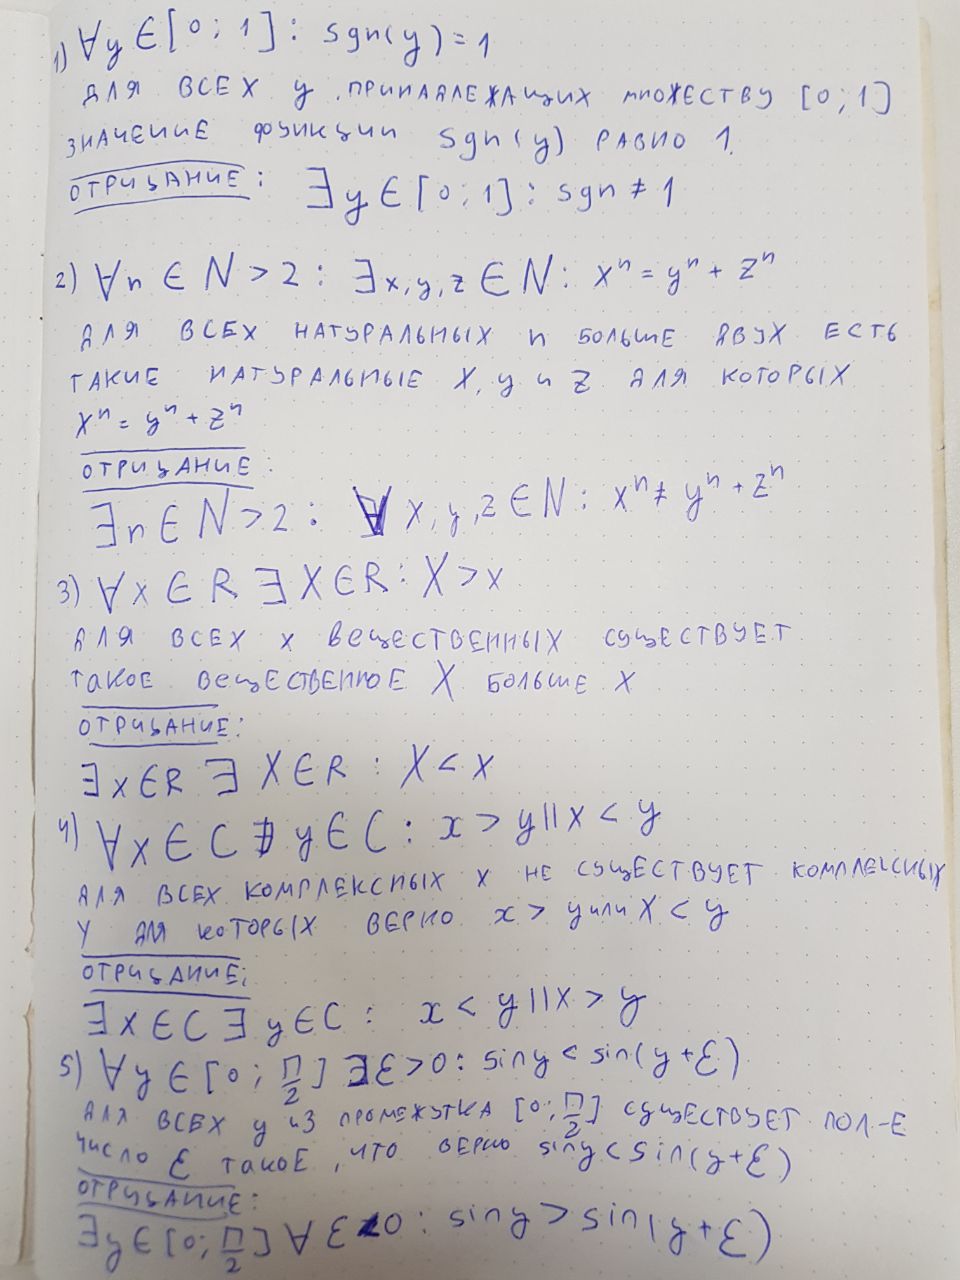 1) ∀y ∈ [0; 1]: sgn(y) = 1
для всех y, принадлежащих множеству [0; 1]
значение функции sgn(y) равно 1.
отрицание: ∃y ∈ [0; 1]: sgn ≠ 1
2) ∀n ∈ N > 2: ∃x, y, z ∈ N: xⁿ = yⁿ + zⁿ
для всех натуральных n больше двух есть
такие натуральные x, y и z для которых
xⁿ = yⁿ + zⁿ
отрицание:
∃n ∈ N > 2: ∀x, y, z ∈ N: xⁿ ≠ yⁿ + zⁿ
3) ∀x ∈ R ∃X ∈ R: X > x
для всех x вещественных существует
такое вещественное X больше x
отрицание:
∃x ∈ R ∃ X ∈ R: X < x
4) ∀x ∈ C ∄ y ∈ C: x > y || x < y
для всех комплексных x не существует комплексных
y для которых верно x > y или x < y
отрицание:
∃x ∈ C ∃ y ∈ C: x < y || x > y
5) ∀y ∈ [0; П/2] ∃ε > 0: sin y < sin(y + ε)
для всех y из промежутка [0; П/2] существует пол-е
число ε такое, что верно sin y < sin(y + ε)
отрицание:
∃y ∈ [0; П/2] ∀ ε 0: sin y > sin(y + ε)